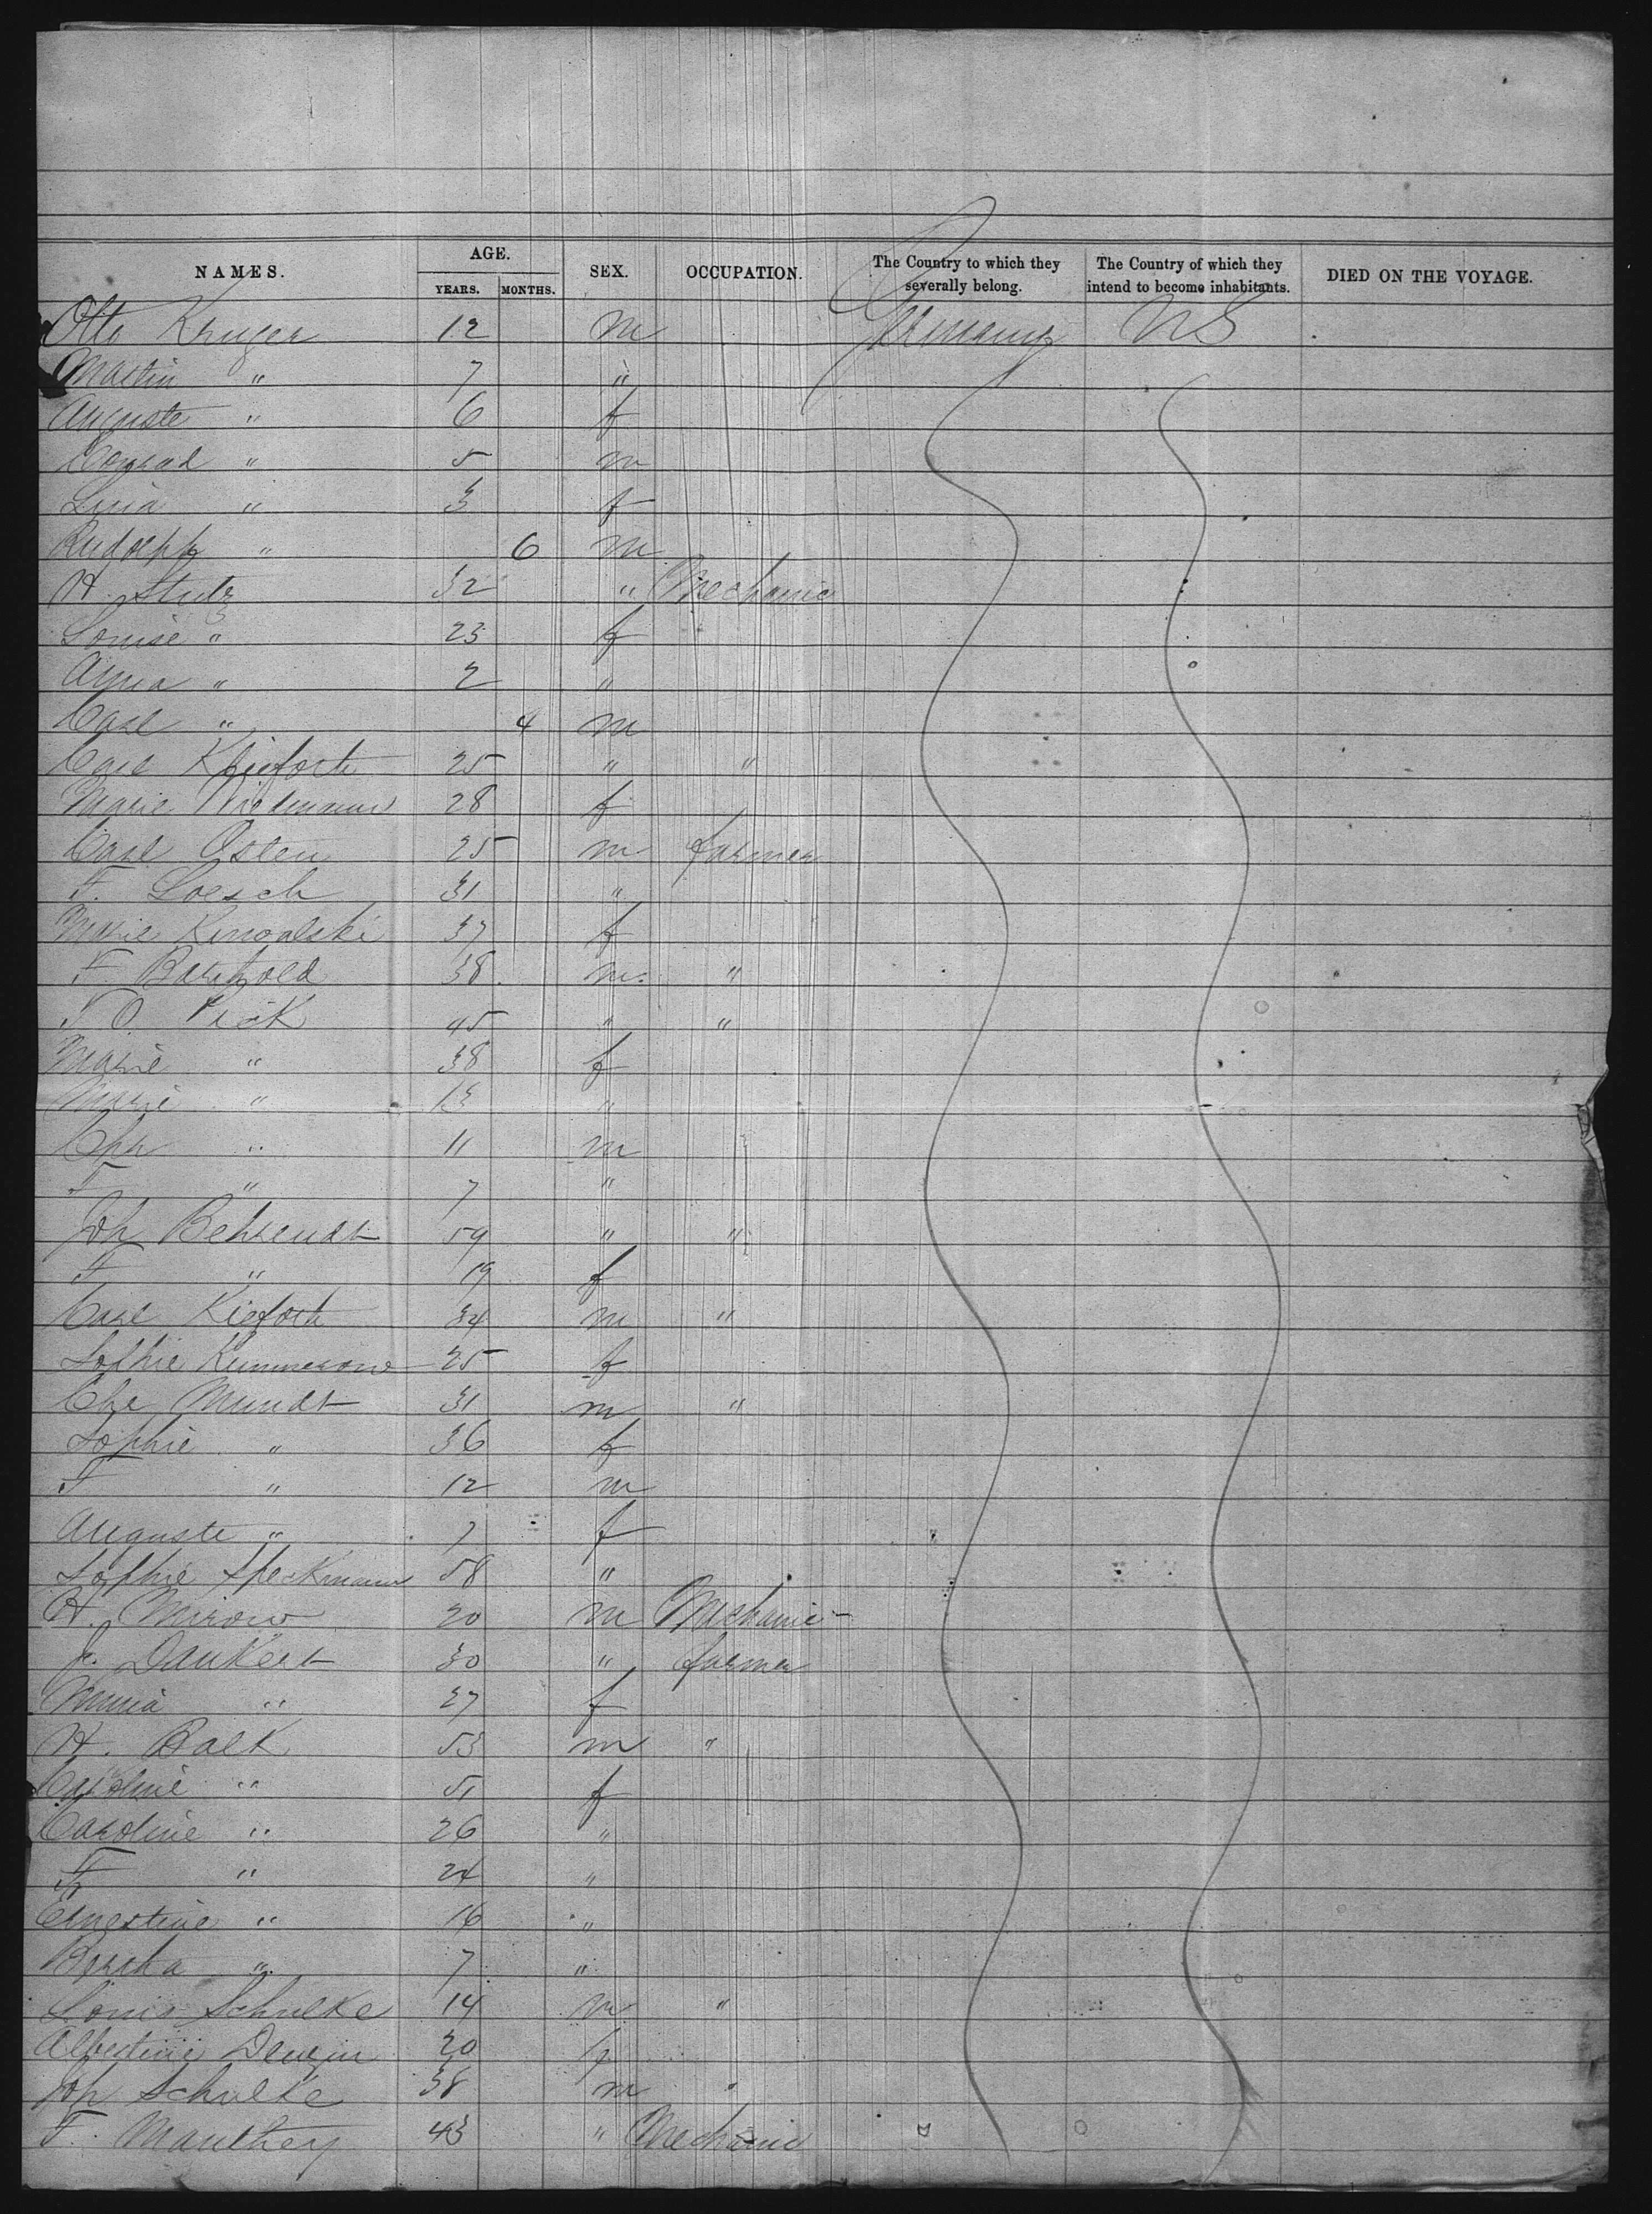 NAMES. AGE. SEX. OCCUPATION. The Country to which they severally belong. The Country of which they intend to become inhabitants. DIED ON THE VOYAGE.
YEARS. MONTHS.
Otto Kruger 12 m Germany US
Martin " 7 "
Auguste " 6 f
Conrad " 5 m
Lina " 3 f
Rudolph " 6 m
H. Stutz 32 " Mechanic
Louise " 23 f
Anna " 2 "
Carl " 4 m
Carl 25 " "
Marie 28 f
Carl Osten 25 m farmer
F. Loesch 31 "
Marie 37 f
F. Barthold 38 m. "
F. O. Pick 45 " "
Marie " 38 f
Marie " 13 "
Chr " 11 m
F " 7 "
Joh Behrendt 59 " "
F " 19 f
Carl Kieforth 34 m "
Sophie Kummerow 25 f
Chr Mundt 31 m "
Sophie " 36 f
F " 12 m
Auguste " 7 f
Sophie Speckmann 58 "
H. Mirow 20 m Mechanic
J. Dankert 30 " farmer
Maria " 27 f
H. Balk 53 m "
Caroline " 51 f
Caroline " 26 "
Fr " 24 "
Ernestine " 16 "
Bertha " 7 "
Louis Schulke 14 m "
Albertine 20 f
Joh Schulke 38 m "
F. Manthey 43 " Mechanic